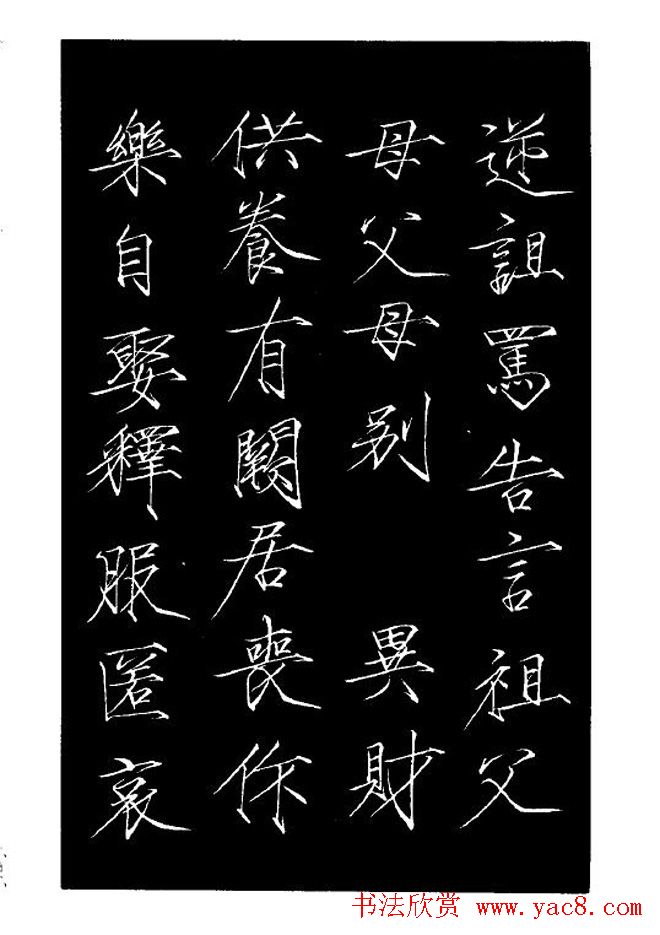 逆詛罵告言祖父
母父母别 異財
供養有闕居喪作
樂自娶釋服匿哀
书法欣赏 www.yac8.com